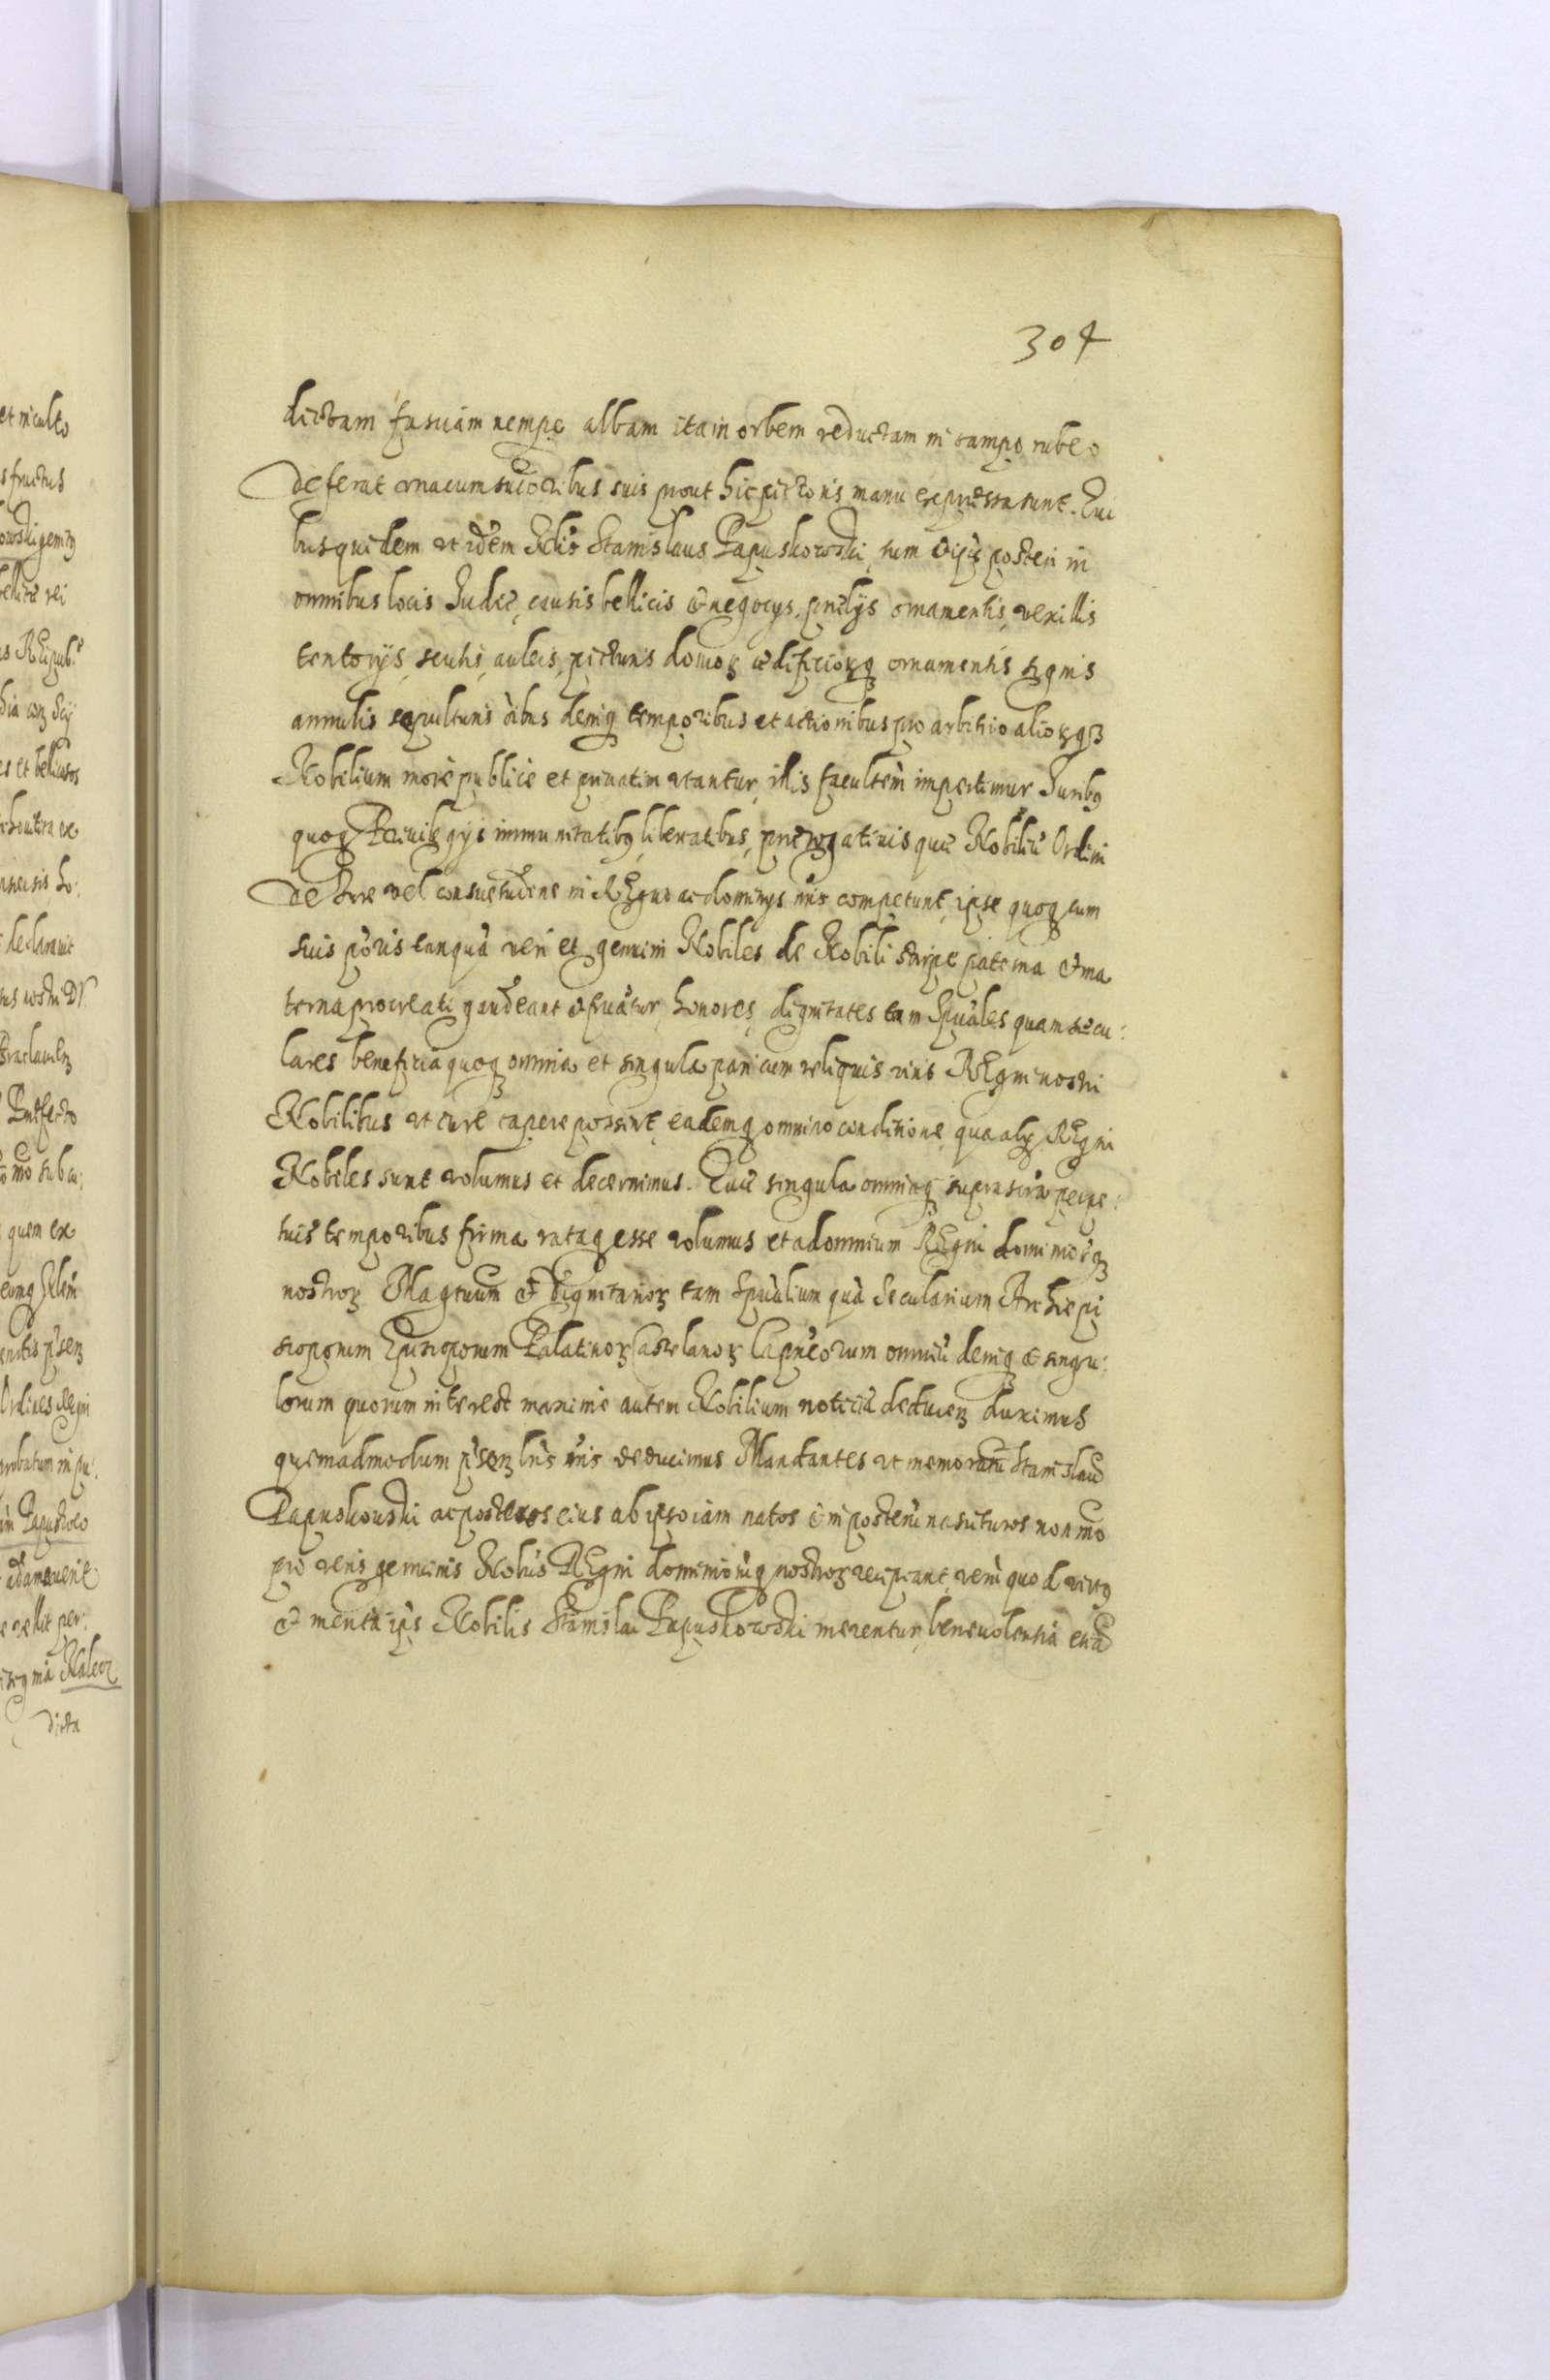 304
dictam fasciam nempe albam ita in orbem reductam in campo rubeo
deferat una cum succoribus suis prout hic pictoris manu expressa sunt. Qui
busquidem ut idem Stanislaus Papuskowski, tum posteri in
omnibus locis Judic, causis bellicis & negocys, prælijs ornamentis, vexillis
tentorijs, scutis, auleis, picturis domoꝝ ædificioꝝq ornamentis signis
annulis sepulturis oibus deniq temporibus et actionibus pro arbitrio alioꝝq
Nobilium more publice et privatim utantur, illis facultem impertimur Juribq
quoq Privilegijs immunitatibq, libertatibus, prærogativis quæ Nobiliu Ordini
De Jure vel consuetudine in REgno ac dominys nris competunt, ipse quoq cum
suis poris tanqua veri et genuini Nobiles de Nobili stirpe paterna & ma
terna procreati gaudeant & fruatur, honores, dignitates tam Spuales quam secu:
lares beneficia quoq omnia et singula pari cum reliquis viris REgni nostri
Nobilibus ut jure capere possint, eademq omnino conditione, qua alij REgni
Nobiles sunt volumus et decernimus. Quæ singula omniaq suprascra perpe:
tuis temporibus firma rataq esse volumus et ad omnium REgni dominioꝝq
nostroꝝ Magtuum & Dignitarioꝝ tam Spualium qua Secularium Archiepi
scoporum Episcoporum Palatinoꝝ Castelanoꝝ Capneorum omniu deniq & singu:
lorum quorum interest maxime autem Nobilium noticia deducen duximus
quemadmodum psen lris nris deducimus Mandantes ut memoratu Stanislau
Papuskouski ac posteros eius ab ipso iam natos & in posteru nascituros non mo
pro veris genuinis Nobis REgni dominioruq nostroꝝ recipiant, veru quod virtq
& merita ips Nobilis Stanislai Papuskowski merentur, benevolentia etia